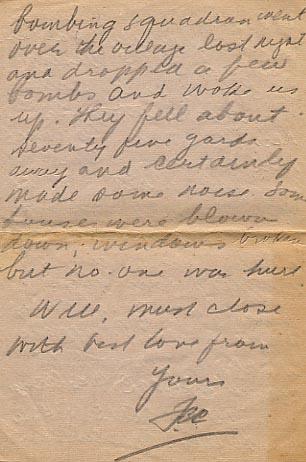 bombing squadron went
over the village last night
and dropped a few
bombs and woke us
up. They fell about
seventy five yards
away and certainly
made some noise some
houses were blown
down, windows broken
but no one was hurt.
Well, must close
with best love from
Yours